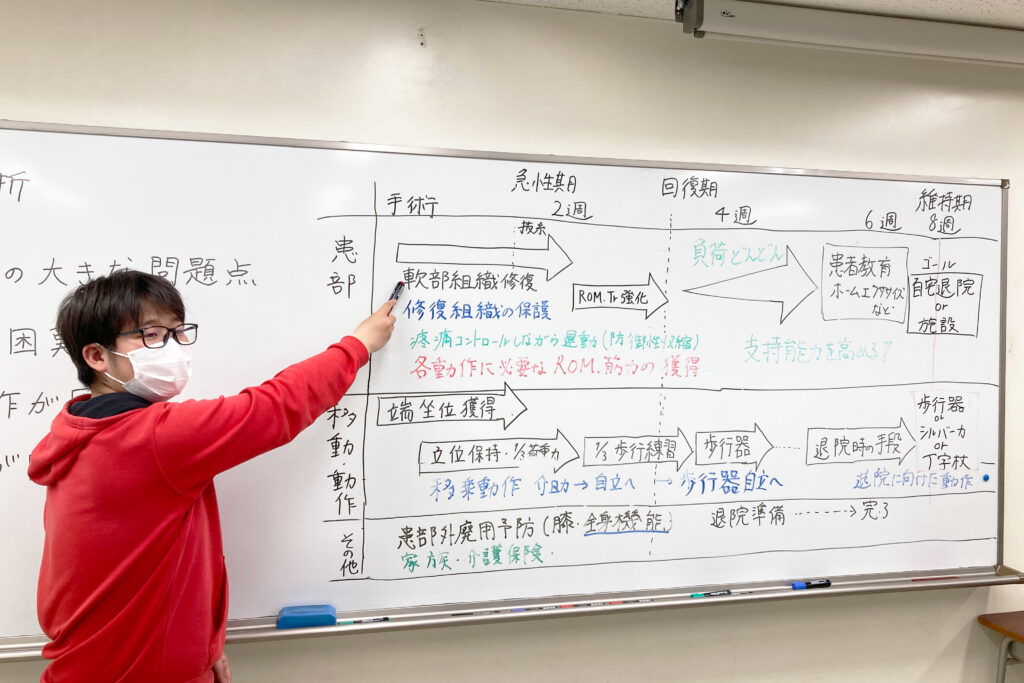 断
の大きな問題点
困
作が
手術
急性期
2週
回復期
4週
6週
維持期
8週
患部
抜糸
軟部組織修復
修復組織の保護
疼痛コントロールしながら運動(防御性収縮)
各動作に必要なROM、筋力の獲得
ROM.Tr強化
負荷どんどん
支持能力を高める?
患者教育
ホームエクササイズ
など
ゴール
自宅退院
or
施設
移動・動作
端坐位獲得
立位保持・1/3荷重力
1/3歩行練習
歩行器
退院時の手段
歩行器
or
シルバーカ
or
T字杖
移乗動作 介助→自立へ
→歩行器自立へ
退院に向けた動作
その他
患部外廃用予防(膝・全身機能)
退院準備------→完了
家方便・介護保険・